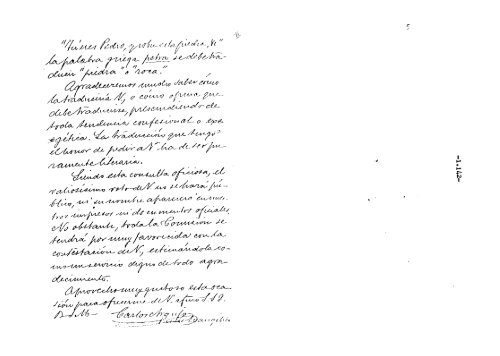 "Tú eres Pedro, y sobre esta piedra, &"
la palabra griega petra se debe tra-
ducir "piedra" ó "roca."
Agradeceremos mucho saber cómo
la traduciría V, o cómo opina que
debe traducirse, prescindiendo de
toda tendencia confesional o exe-
gética. La traducción que tengo
el honor de pedir a V ha de ser pu-
ramente literaria.
Siendo esta consulta oficiosa, el
valiosísimo voto de V no se hará pú-
blico, ni su nombre aparecerá en nues-
tros impresos ni documentos oficiales.
No obstante, toda la Comisión se
tendrá por muy favorecida con la
contestación de V, estimándola co-
mo un servicio digno de todo agra-
decimiento.
Aprovecho muy gustoso esta oca-
sión para ofrecerme de V. afmo S.S.
B. S. M.
Carlos Araujo
-1.142-